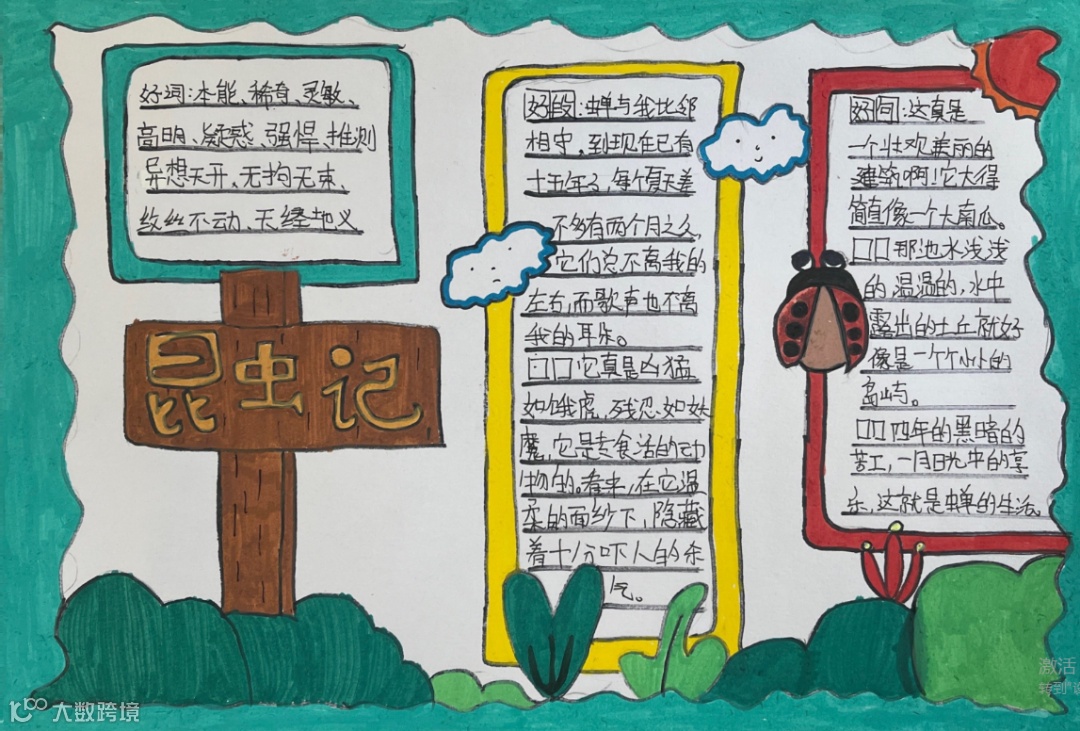 好词:本能、稀奇、灵敏、
高明、疑惑、强悍、推测
异想天开、无拘无束、
纹丝不动、天经地义
昆虫记
好段:蝉与我比邻
相守,到现在已有
十五年了,每个夏天差
不多有两个月之久,
它们总不离我的
左右,而歌声也不离
我的耳朵。
口口它真是凶猛
如饿虎,残忍如妖
魔,它是专食活的动
物的。看来,在它温
柔的面纱下,隐藏
着十分吓人的杀
气。
好句:这真是
一个壮观美丽的
建筑啊!它大得
简直像一个大南瓜。
口口那池水浅浅
的,温温的,水中
露出的土丘就好
像是一个个小小的
岛屿。
口口四年的黑暗的
苦工,一月日光中的享
乐,这就是蝉的生活。
激活
转到"设
10100 大数跨境